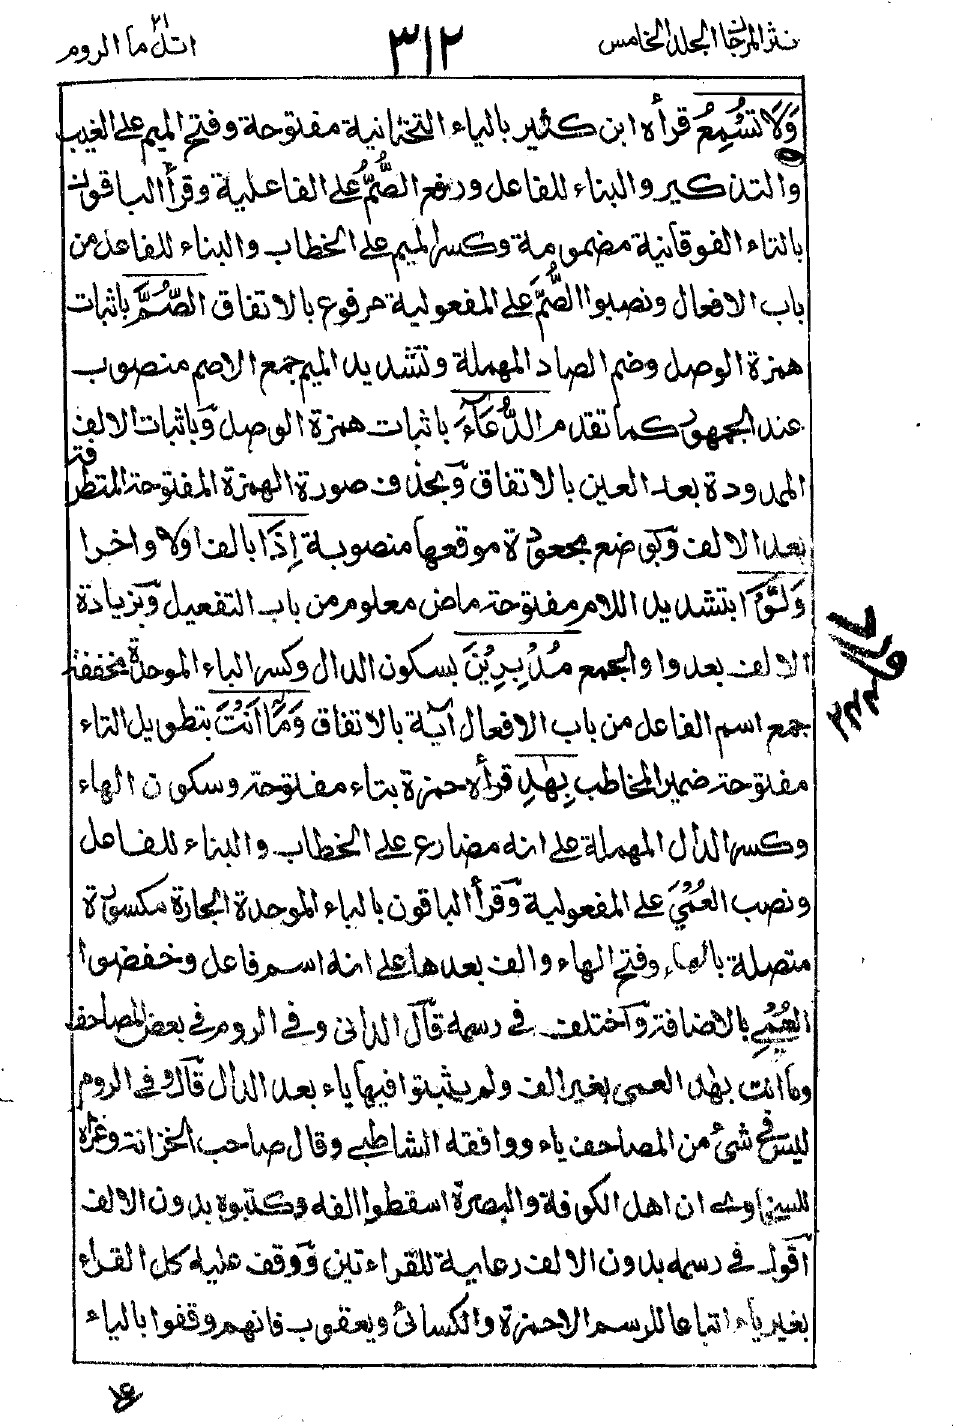 نثر المرجان المجلد الخامس
٣١٢
اتل ما الروم ٢١
وَلَا تُسْمِعُ قرأه ابن كثير بالياء التحتانية مفتوحة وفتح الميم على الغيب
والتذكير والبناء للفاعل ورفع الصُّمُّ على الفاعلية وقرأ الباقون
بالتاء الفوقانية مضمومة وكسر الميم على الخطاب والبناء للفاعل من
باب الافعال ونصبوا الصُّمَّ على المفعولية مرفوع بالاتفاق الصُّمَّ باثبات
همزة الوصل وضم الصاد المهملة وتشديد الميم جمع الاصم منصوب
عند الجمهور كما تقدم الدُّعَآءَ باثبات همزة الوصل وباثبات الالف
الممدودة بعد العين بالاتفاق وبحذف صورة الهمزة المفتوحة المتطرفة
بعد الالف وبوضع مجعودة موقعها منصوبة إِذَا بالف اولا واخرا
وَلَّوْا بتشديد اللام مفتوحة ماض معلوم من باب التفعيل وبزيادة
الالف بعد واو الجمع مُدْبِرِيْنَ بسكون الدال وكسر الباء الموحدة مخففة
جمع اسم الفاعل من باب الافعال آية بالاتفاق وَمَآ اَنْتَ بتطويل التاء
مفتوحة ضمير المخاطب بِهٰدِ قرأه حمزة بتاء مفتوحة وسكون الهاء
وكسر الدال المهملة على انه مضارع على الخطاب والبناء للفاعل
ونصب العُمْيَ على المفعولية وقرأ الباقون بالباء الموحدة الجارة مكسورة
متصلة بالهاء وفتح الهاء والف بعدها على انه اسم فاعل وخفضوا
العُمْيِ بالاضافة واختلف في رسمه قال الداني وفي الروم في بعض المصاحف
وما انت بهٰد العمى بغير الف ولم يثبتوا فيها ياء بعد الدال قال وفي الروم
ليس في شئ من المصاحف ياء ووافقه الشاطبي وقال صاحب الخزانة وعزاه
للسيخاوي ان اهل الكوفة والبصرة اسقطوا الفه وكتبوه بدون الالف
اقول في رسمه بدون الالف رعاية للقراءتين ووقف عليه كل القراء
بغير ياء اتباعا للرسم الا حمزة والكسائى ويعقوب فانهم وقفوا بالياء